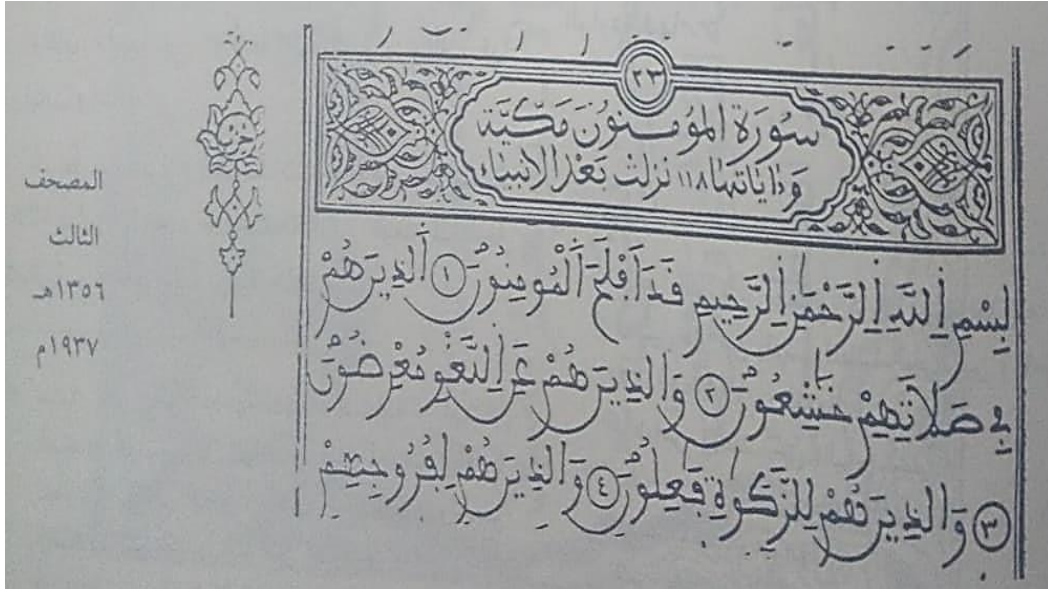 ٢٣
سُورَة المُؤمنُون مَكيَّة
وَءَايَاتهَا ١١٨ نزلت بَعْدَ الأنبيَاء
بِسْمِ اِ۬للَّهِ اِ۬لرَّحْمَٰنِ اِ۬لرَّحِيمِ قَدَ اَفْلَحَ اَ۬لْمُومِنُونَ ١ اَ۬لذِينَ هُمْ
فِے صَلَاتِهِمْ خَٰشِعُونَ ٢ وَالذِينَ هُمْ عَنِ اِ۬للَّغْوِ مُعْرِضُونَ
٣ وَالذِينَ هُمْ لِلزَّكَوٰةِ فَٰعِلُونَ ٤ وَالذِينَ هُمْ لِفُرُوجِهِمْ
المصحف
الثالث
١٣٥٦هـ
١٩٣٧م